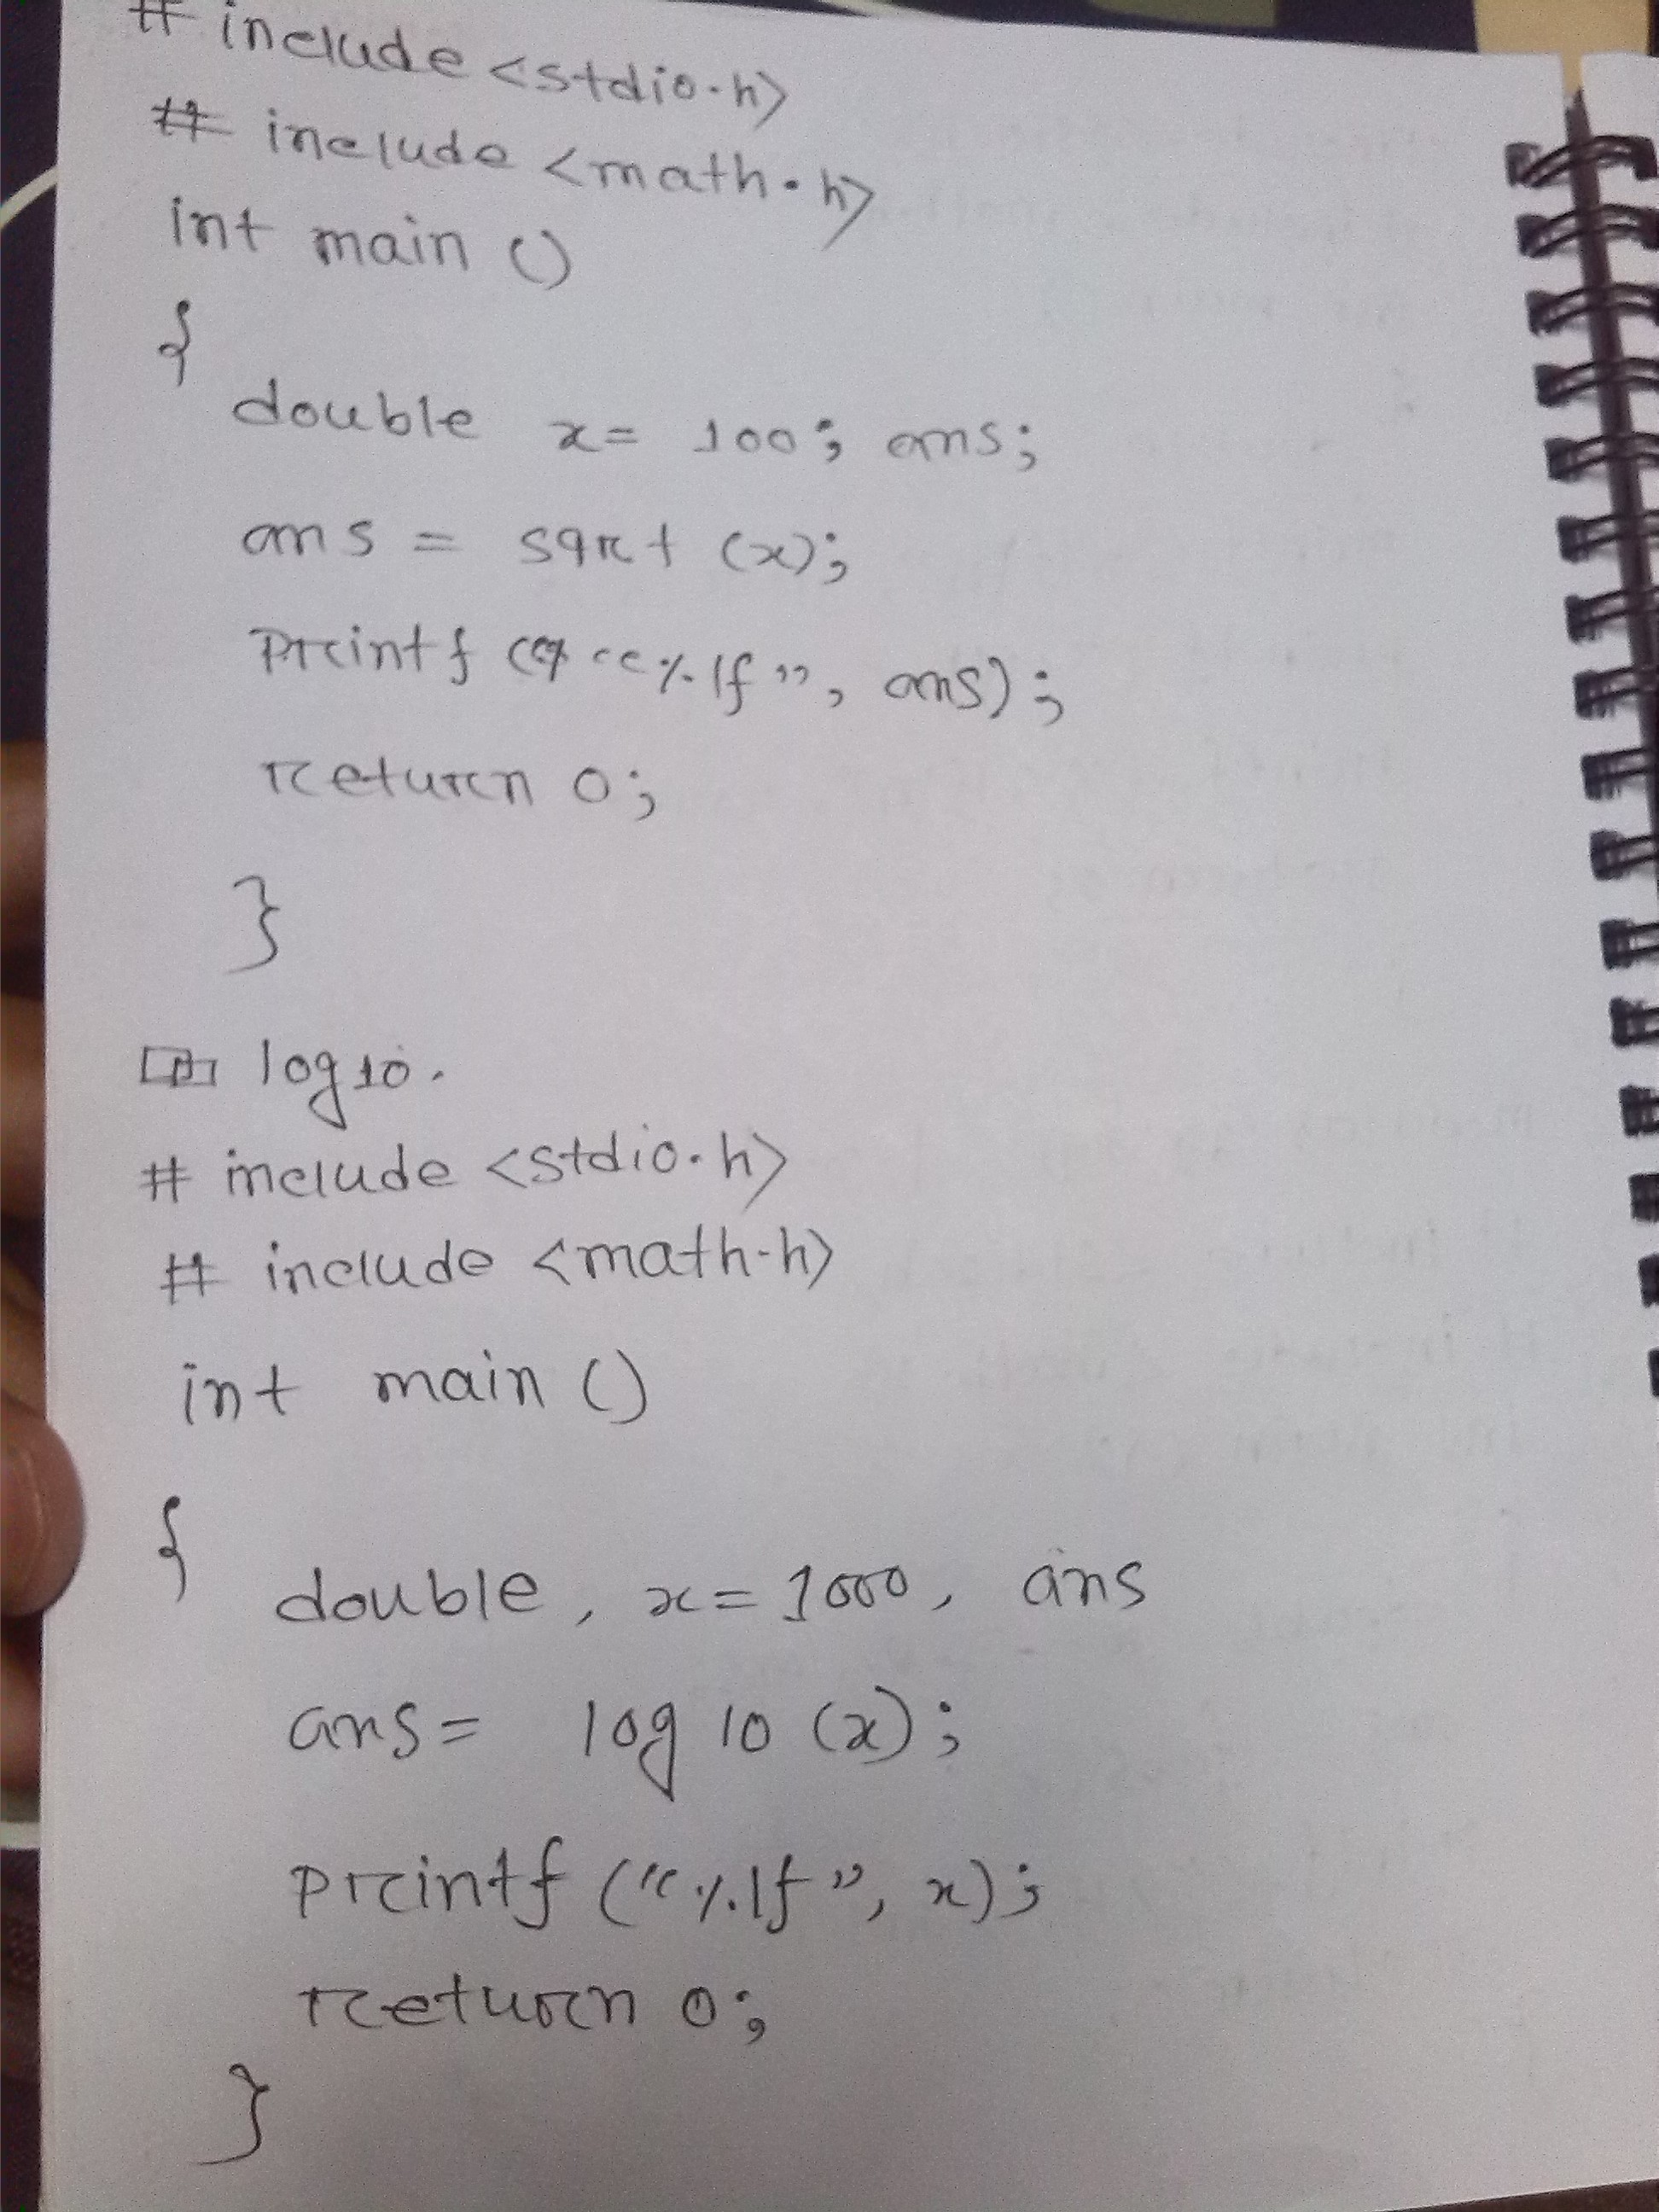 # include <stdio.h>
# include <math.h>
int main ()
{
double x = 100; ans;
ans = sqrt (x);
Printf ( “%lf”, ans);
return 0;
}
log10.
# include <stdio.h>
# include <math.h>
int main ()
{
double, x = 1000, ans
ans = log 10 (x);
printf (“%lf”, x);
return 0;
}